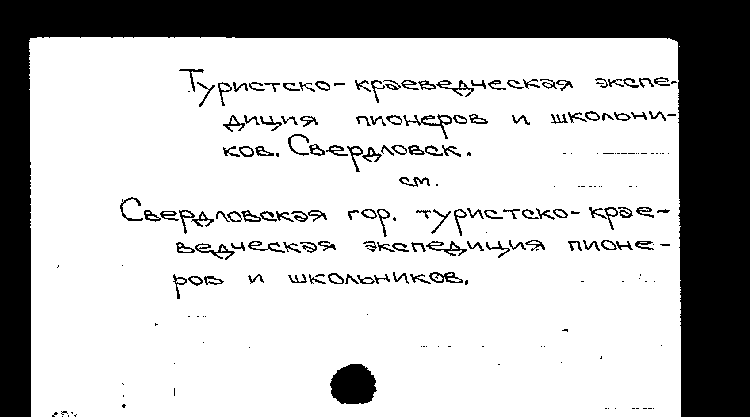 Туристско-краеведческая экспе-
диция пионеров и школьни-
ков. Свердловск.
см.
Свердловская гор. туристско-крае-
ведческая экспедиция пионе-
ров и школьников.